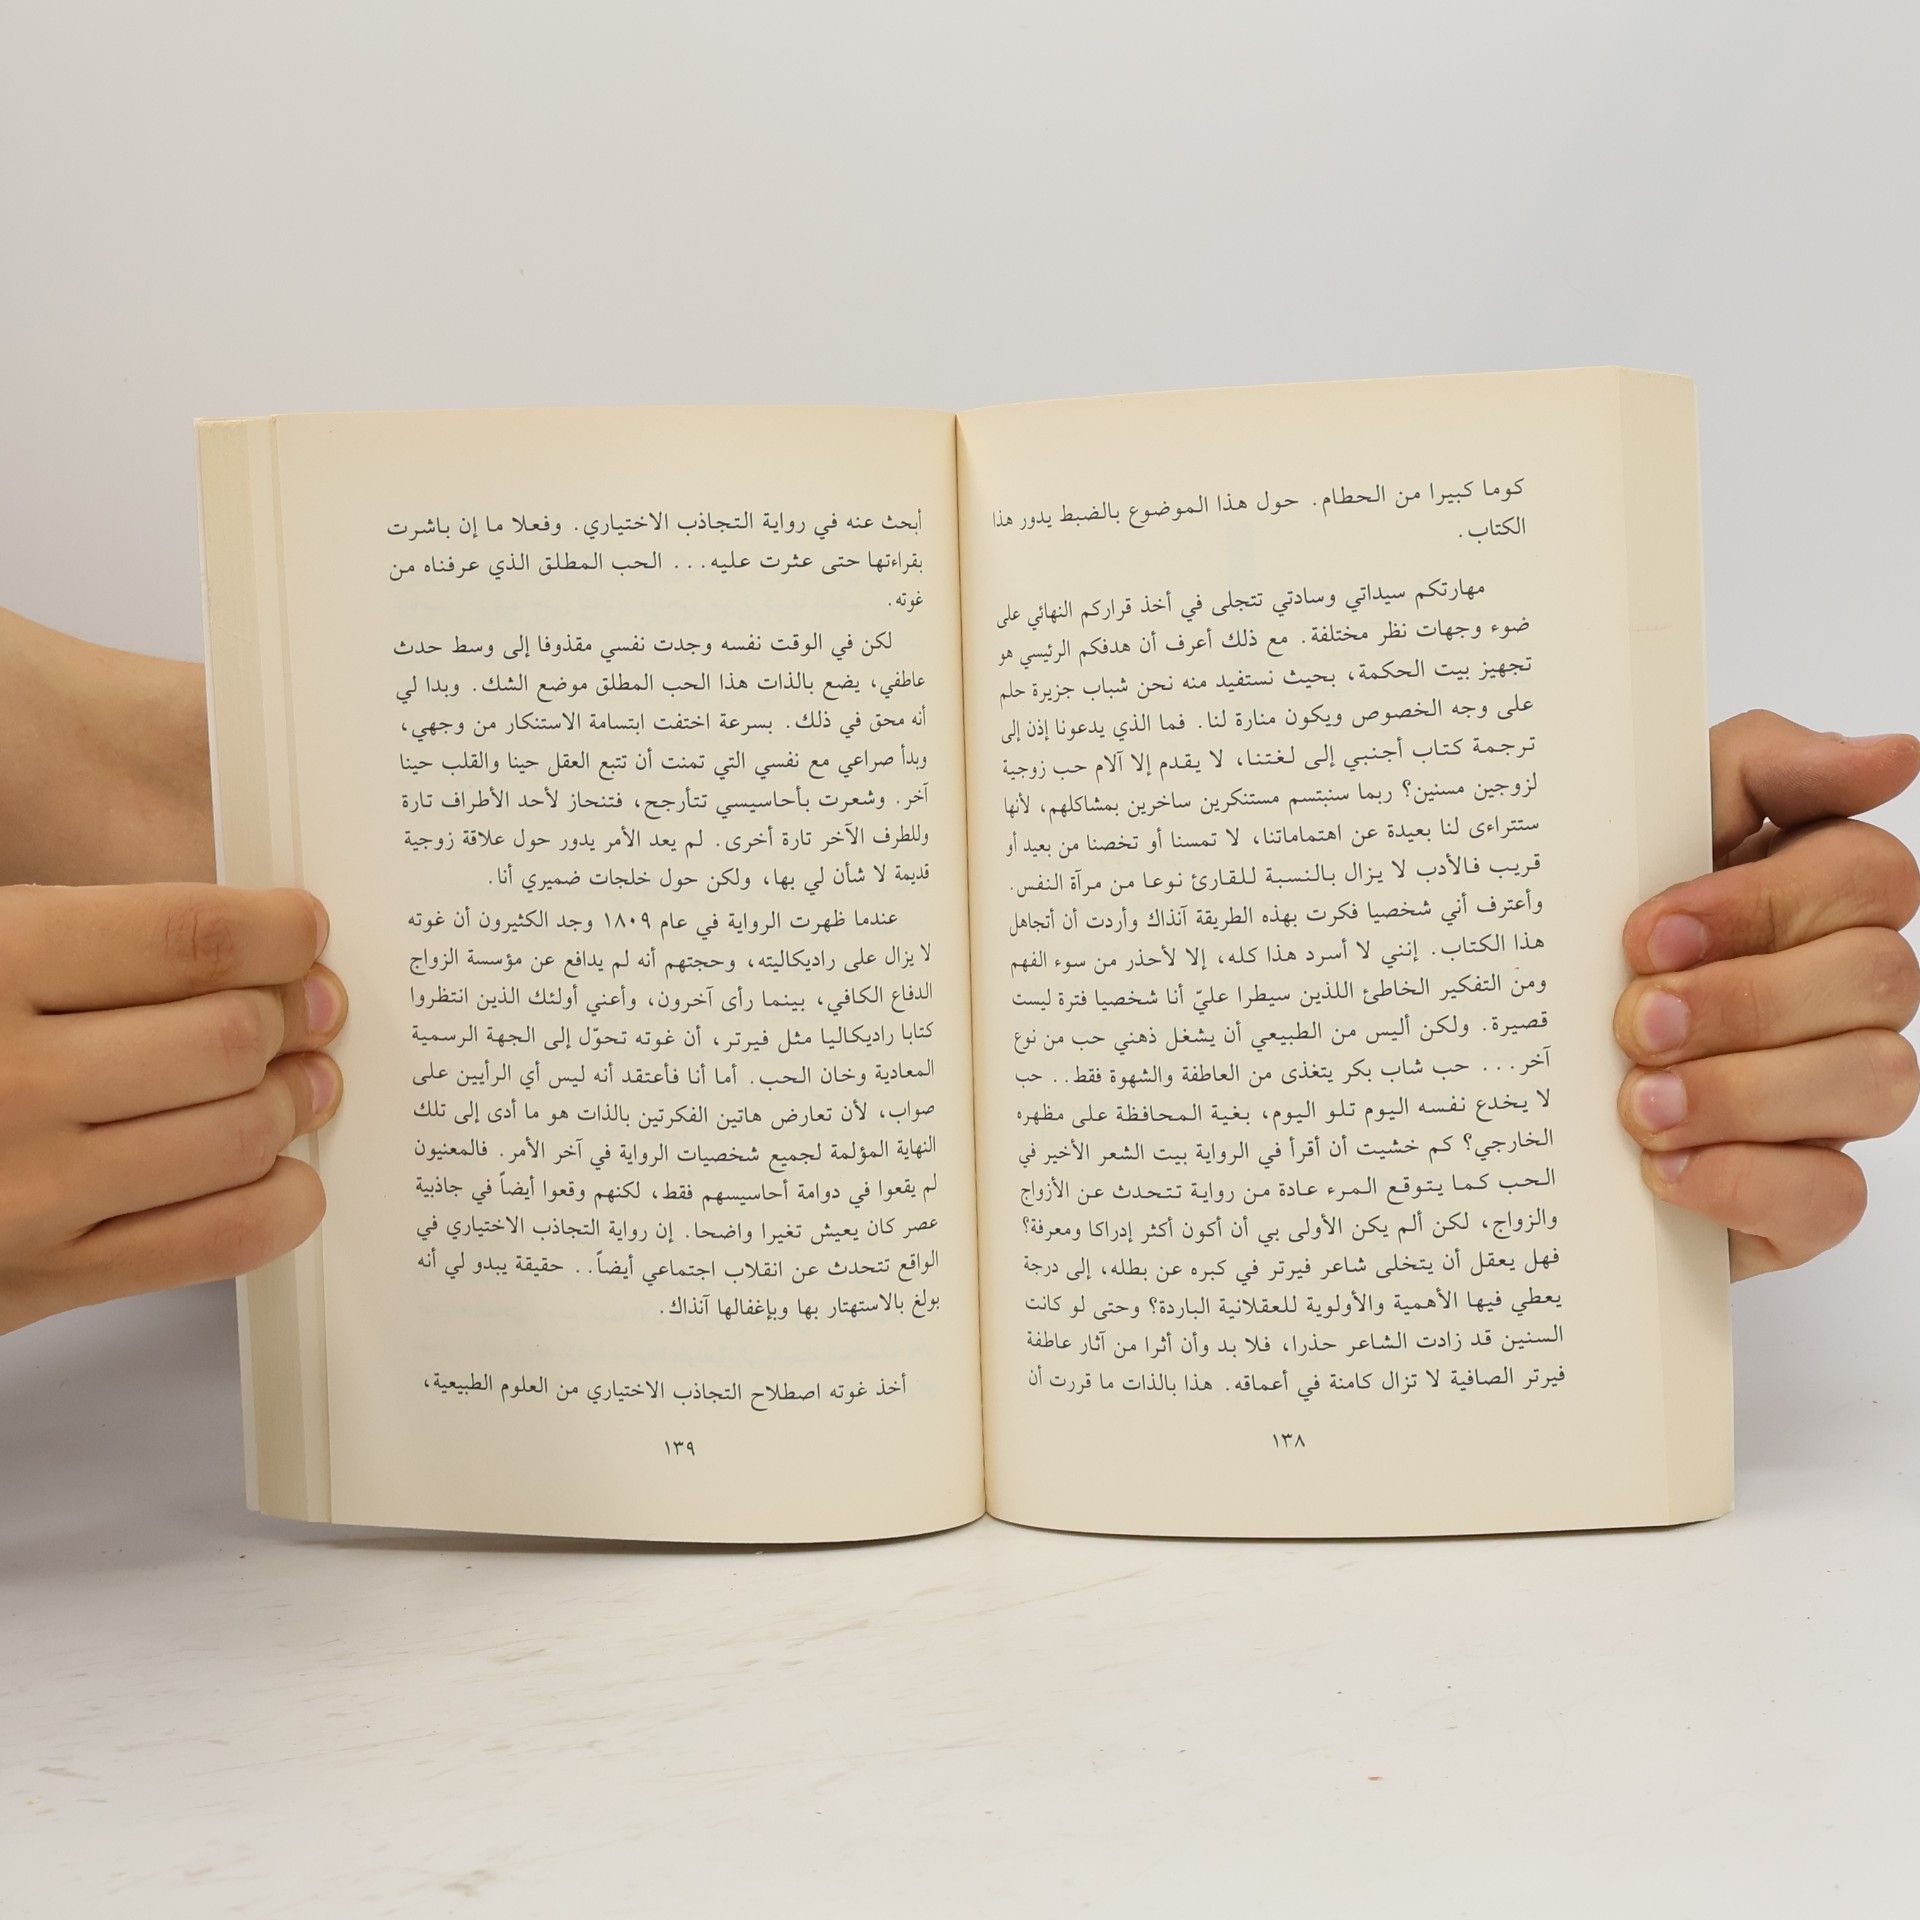 كوما كبيرا من الحطام. حول هذا الموضوع بالضبط يدور هذا
الكتاب.
مهارتكم سيداتي وسادتي تتجلى في أخذ قراركم النهائي على
ضوء وجهات نظر مختلفة. مع ذلك أعرف أن هدفكم الرئيسي هو
تجهيز بيت الحكمة، بحيث نستفيد منه نحن شباب جزيرة حلم
على وجه الخصوص ويكون منارة لنا. فما الذي يدعونا إذن إلى
ترجمة كتاب أجنبي إلى لغتنا، لا يقدم إلا آلام حب زوجية
لزوجين مسنين؟ ربما سنبتسم مستنكرين ساخرين بمشاكلهم، لأنها
ستتراءى لنا بعيدة عن اهتماماتنا، لا تمسنا أو تخصنا من بعيد أو
قريب فالأدب لا يزال بالنسبة للقارئ نوعا من مرآة النفس.
وأعترف أني شخصيا فكرت بهذه الطريقة آنذاك وأردت أن أتجاهل
هذا الكتاب. إنني لا أسرد هذا كله، إلا لأحذر من سوء الفهم
ومن التفكير الخاطئ اللذين سيطرا عليّ أنا شخصيا فترة ليست
قصيرة. ولكن أليس من الطبيعي أن يشغل ذهني حب من نوع
آخر... حب شاب بكر يتغذى من العاطفة والشهوة فقط.. حب
لا يخدع نفسه اليوم تلو اليوم، بغية المحافظة على مظهره
الخارجي؟ كم خشيت أن أقرأ في الرواية بيت الشعر الأخير في
الحب كما يتوقع المرء عادة من رواية تتحدث عن الأزواج
والزواج، لكن ألم يكن الأولى بي أن أكون أكثر إدراكا ومعرفة؟
فهل يعقل أن يتخلى شاعر فيرتر في كبره عن بطله، إلى درجة
يعطي فيها الأهمية والأولوية للعقلانية الباردة؟ وحتى لو كانت
السنين قد زادت الشاعر حذرا، فلا بد وأن أثرا من آثار عاطفة
فيرتر الصافية لا تزال كامنة في أعماقه. هذا بالذات ما قررت أن
١٣٨
أبحث عنه في رواية التجاذب الاختياري. وفعلا ما إن باشرت
بقراءتها حتى عثرت عليه... الحب المطلق الذي عرفناه من
غوته.
لكن في الوقت نفسه وجدت نفسي مقذوفا إلى وسط حدث
عاطفي، يضع بالذات هذا الحب المطلق موضع الشك. وبدا لي
أنه محق في ذلك. بسرعة اختفت ابتسامة الاستنكار من وجهي،
وبدأ صراعي مع نفسي التي تمنت أن تتبع العقل حينا والقلب حينا
آخر. وشعرت بأحاسيسي تتأرجح، فتنحاز لأحد الأطراف تارة
وللطرف الآخر تارة أخرى. لم يعد الأمر يدور حول علاقة زوجية
قديمة لا شأن لي بها، ولكن حول خلجات ضميري أنا.
عندما ظهرت الرواية في عام ١٨٠٩ وجد الكثيرون أن غوته
لا يزال على راديكاليته، وحجتهم أنه لم يدافع عن مؤسسة الزواج
الدفاع الكافي، بينما رأى آخرون، وأعني أولئك الذين انتظروا
كتابا راديكاليا مثل فيرتر، أن غوته تحوّل إلى الجهة الرسمية
المعادية وخان الحب. أما أنا فأعتقد أنه ليس أي الرأيين على
صواب، لأن تعارض هاتين الفكرتين بالذات هو ما أدى إلى تلك
النهاية المؤلمة لجميع شخصيات الرواية في آخر الأمر. فالمعنيون
لم يقعوا في دوامة أحاسيسهم فقط، لكنهم وقعوا أيضاً في جاذبية
عصر كان يعيش تغيرا واضحا. إن رواية التجاذب الاختياري في
الواقع تتحدث عن انقلاب اجتماعي أيضاً.. حقيقة يبدو لي أنه
بولغ بالاستهتار بها وبإغفالها آنذاك.
أخذ غوته اصطلاح التجاذب الاختياري من العلوم الطبيعية،
١٣٩